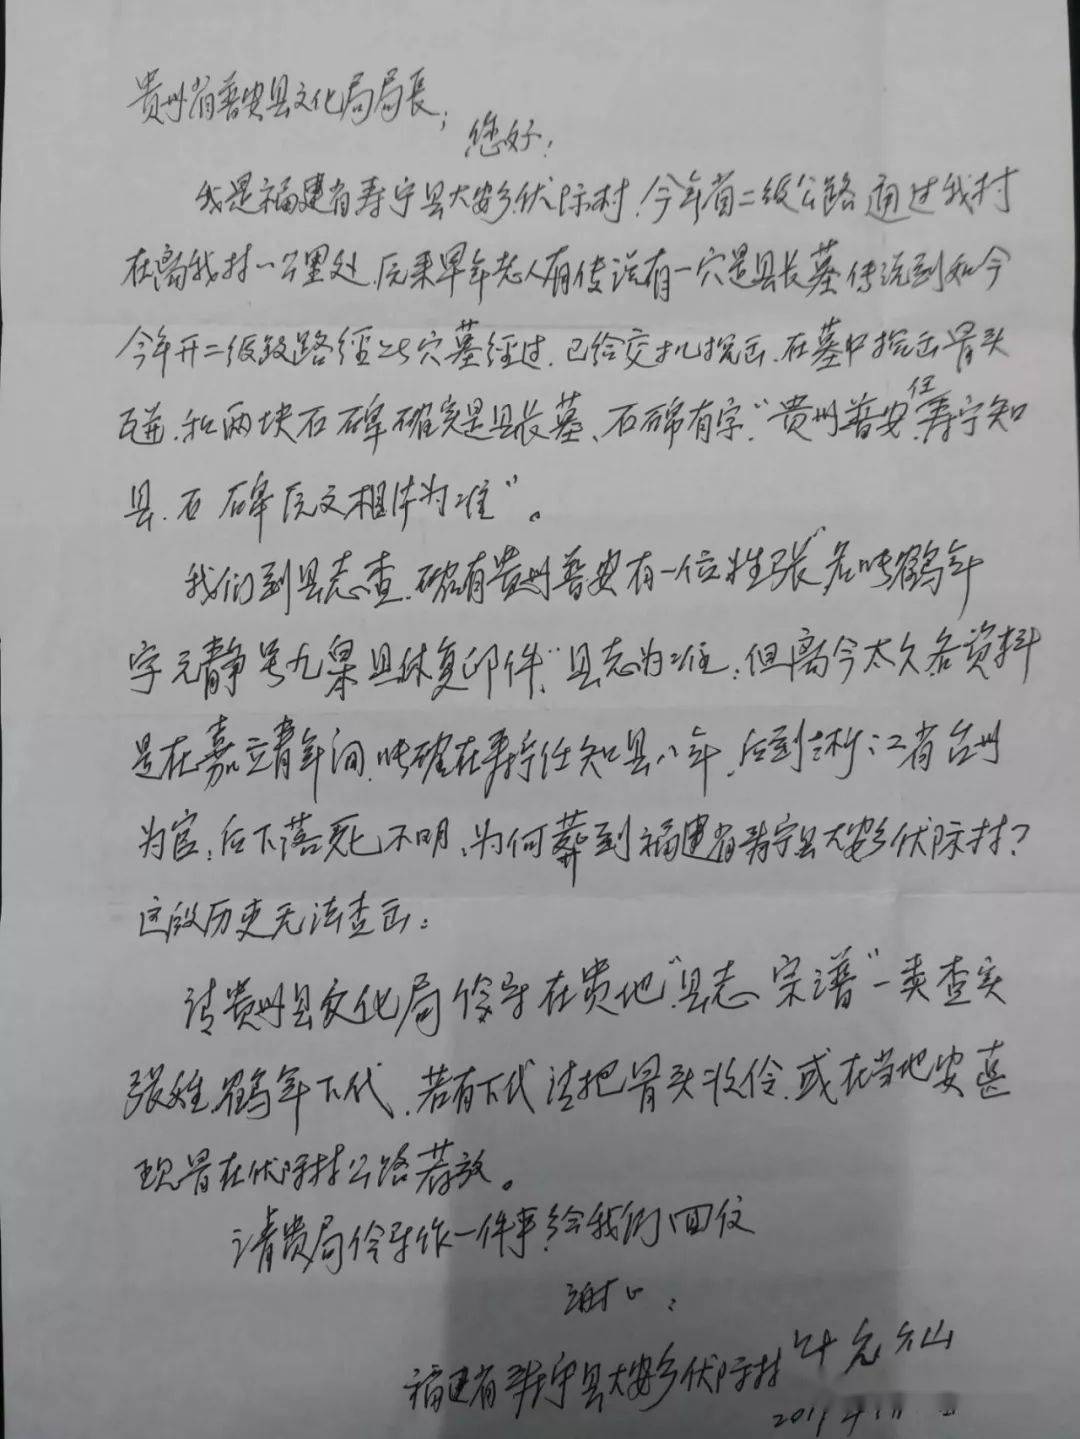 贵州省普安县文化局局長；
您好！
我是福建省寿宁县大安乡伏际村，今年省二级公路通过我村
在离我村一公里处，历来早年老人有传说有一穴是县长墓传说到如今
今年开二级公路经这穴墓经过，已给交机挖出，在墓中挖出骨头
和两块石碑确实是县长墓、石碑有字，“贵州普安，任寿宁知
县，石碑原文相片为准”。
我们到县志查，确有贵州普安有一位姓张名叫鹤年
字元静号九皋具体复印件“县志为准，但离今太久各资料
是在嘉靖年间，的确在寿宁任知县八年，后到浙江省台州
为官，后下落死不明，为何葬到福建省寿宁县大安乡伏际村？
这段历史无法查出：
请贵州县文化局领导在贵地“县志宗谱”一类查实
张姓鹤年下代，若有下代请把骨头收，或在当地安墓
现骨在伏际村公路存放。
请贵局领导作一件事给我们回位
谢心：
福建省寿宁县大安乡伏际村叶
2019年